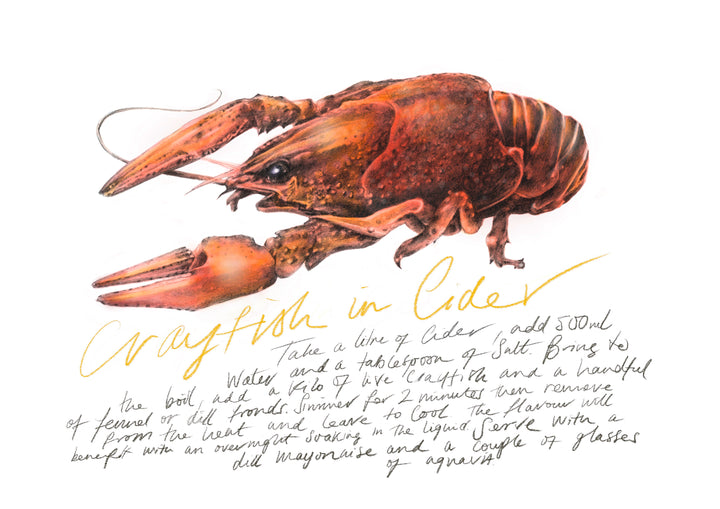 Crayfish in Cider
Take a litre of Cider, add 500ml
Water and a tablespoon of Salt. Bring to
the boil, add a Kilo of live Crayfish and a handful
of fennel or dill fronds. Simmer for 2 minutes then remove
from the heat and leave to cool. The flavour will
benefit with an overnight soaking in the liquid. Serve with a
dill mayonaise and a couple of glasses
of aquavit.